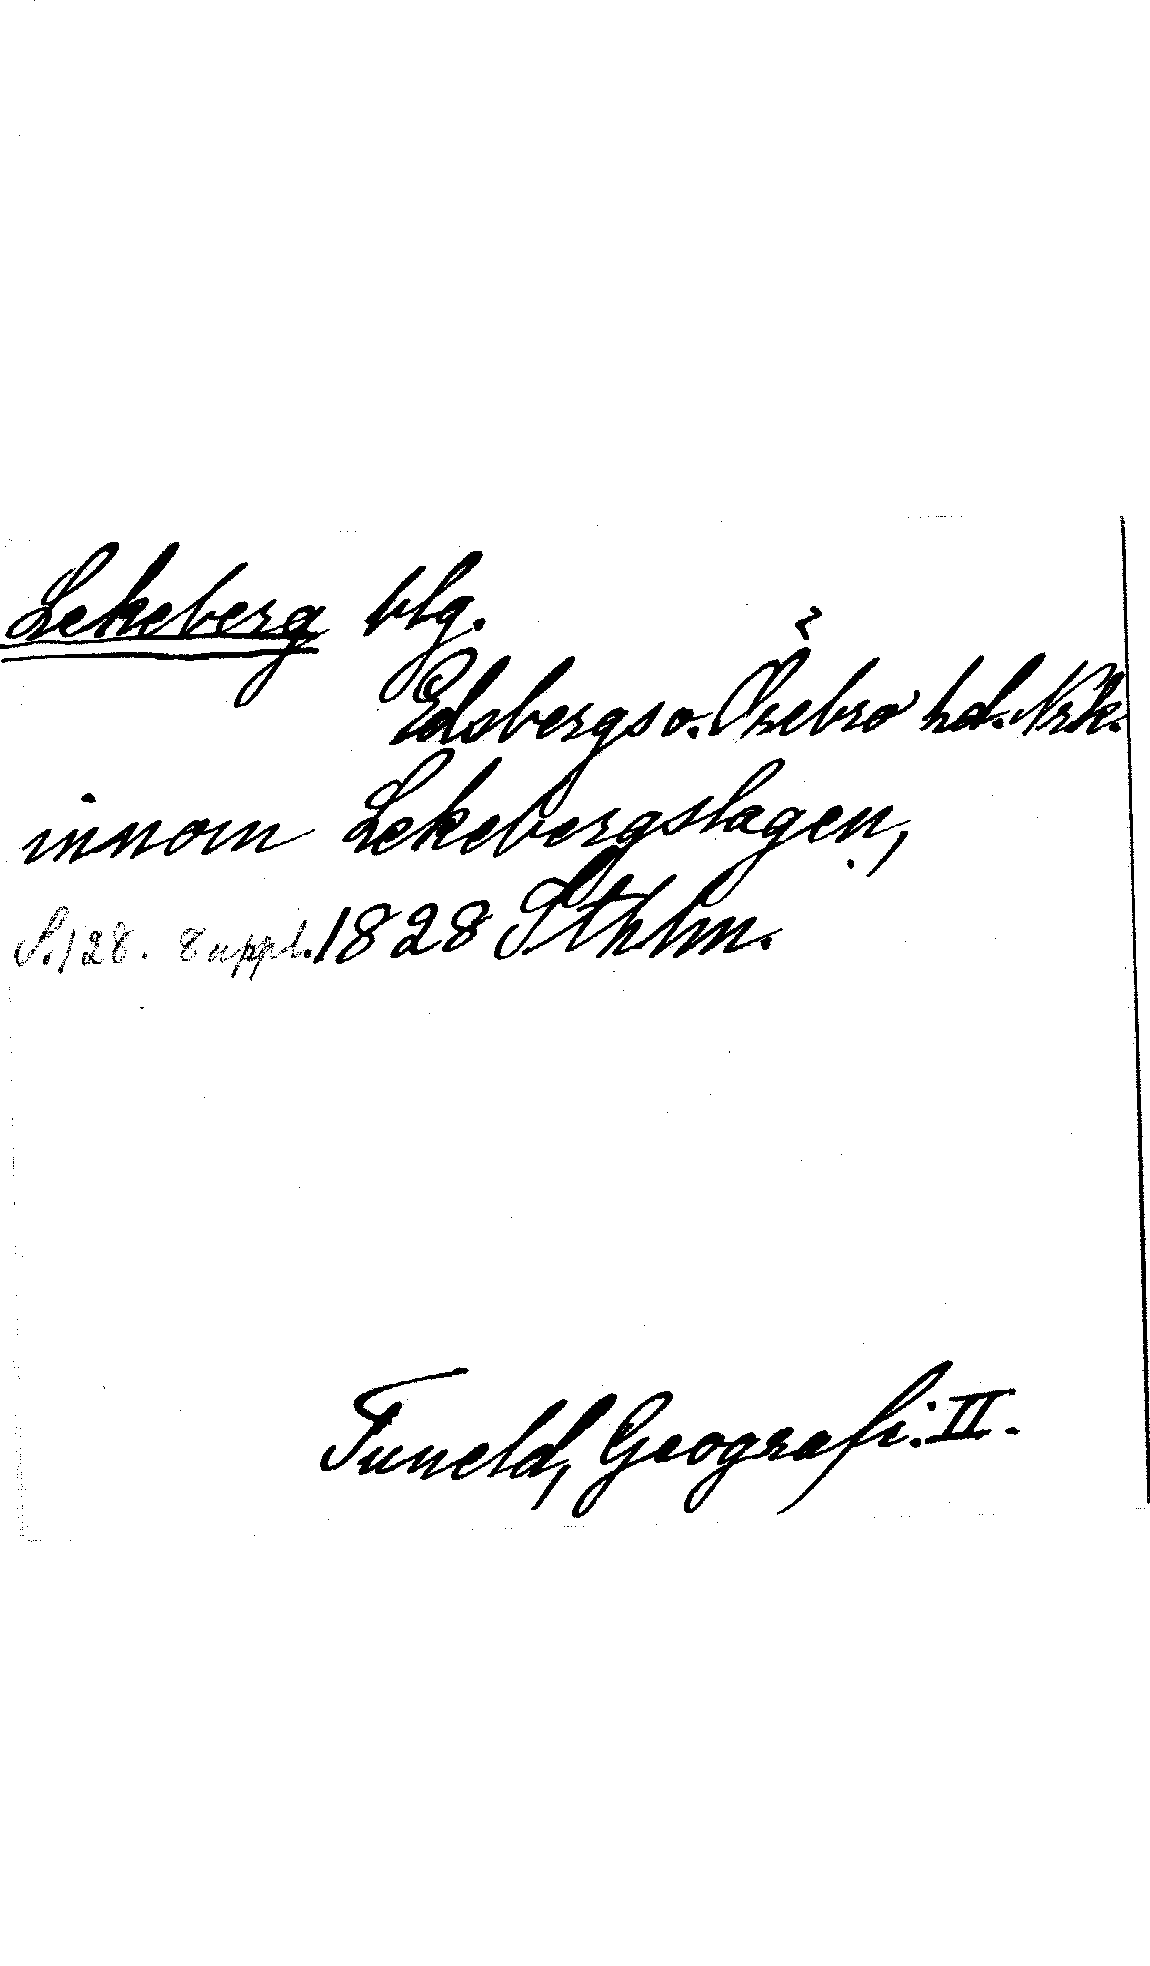 Lekeberg blg.
Edsbergs o. Örebro hd. Nrk.
innom Lekebergslagen,
S. 128. Suppl. 1828 Sthlm.
Tuneld, Geografi: II.